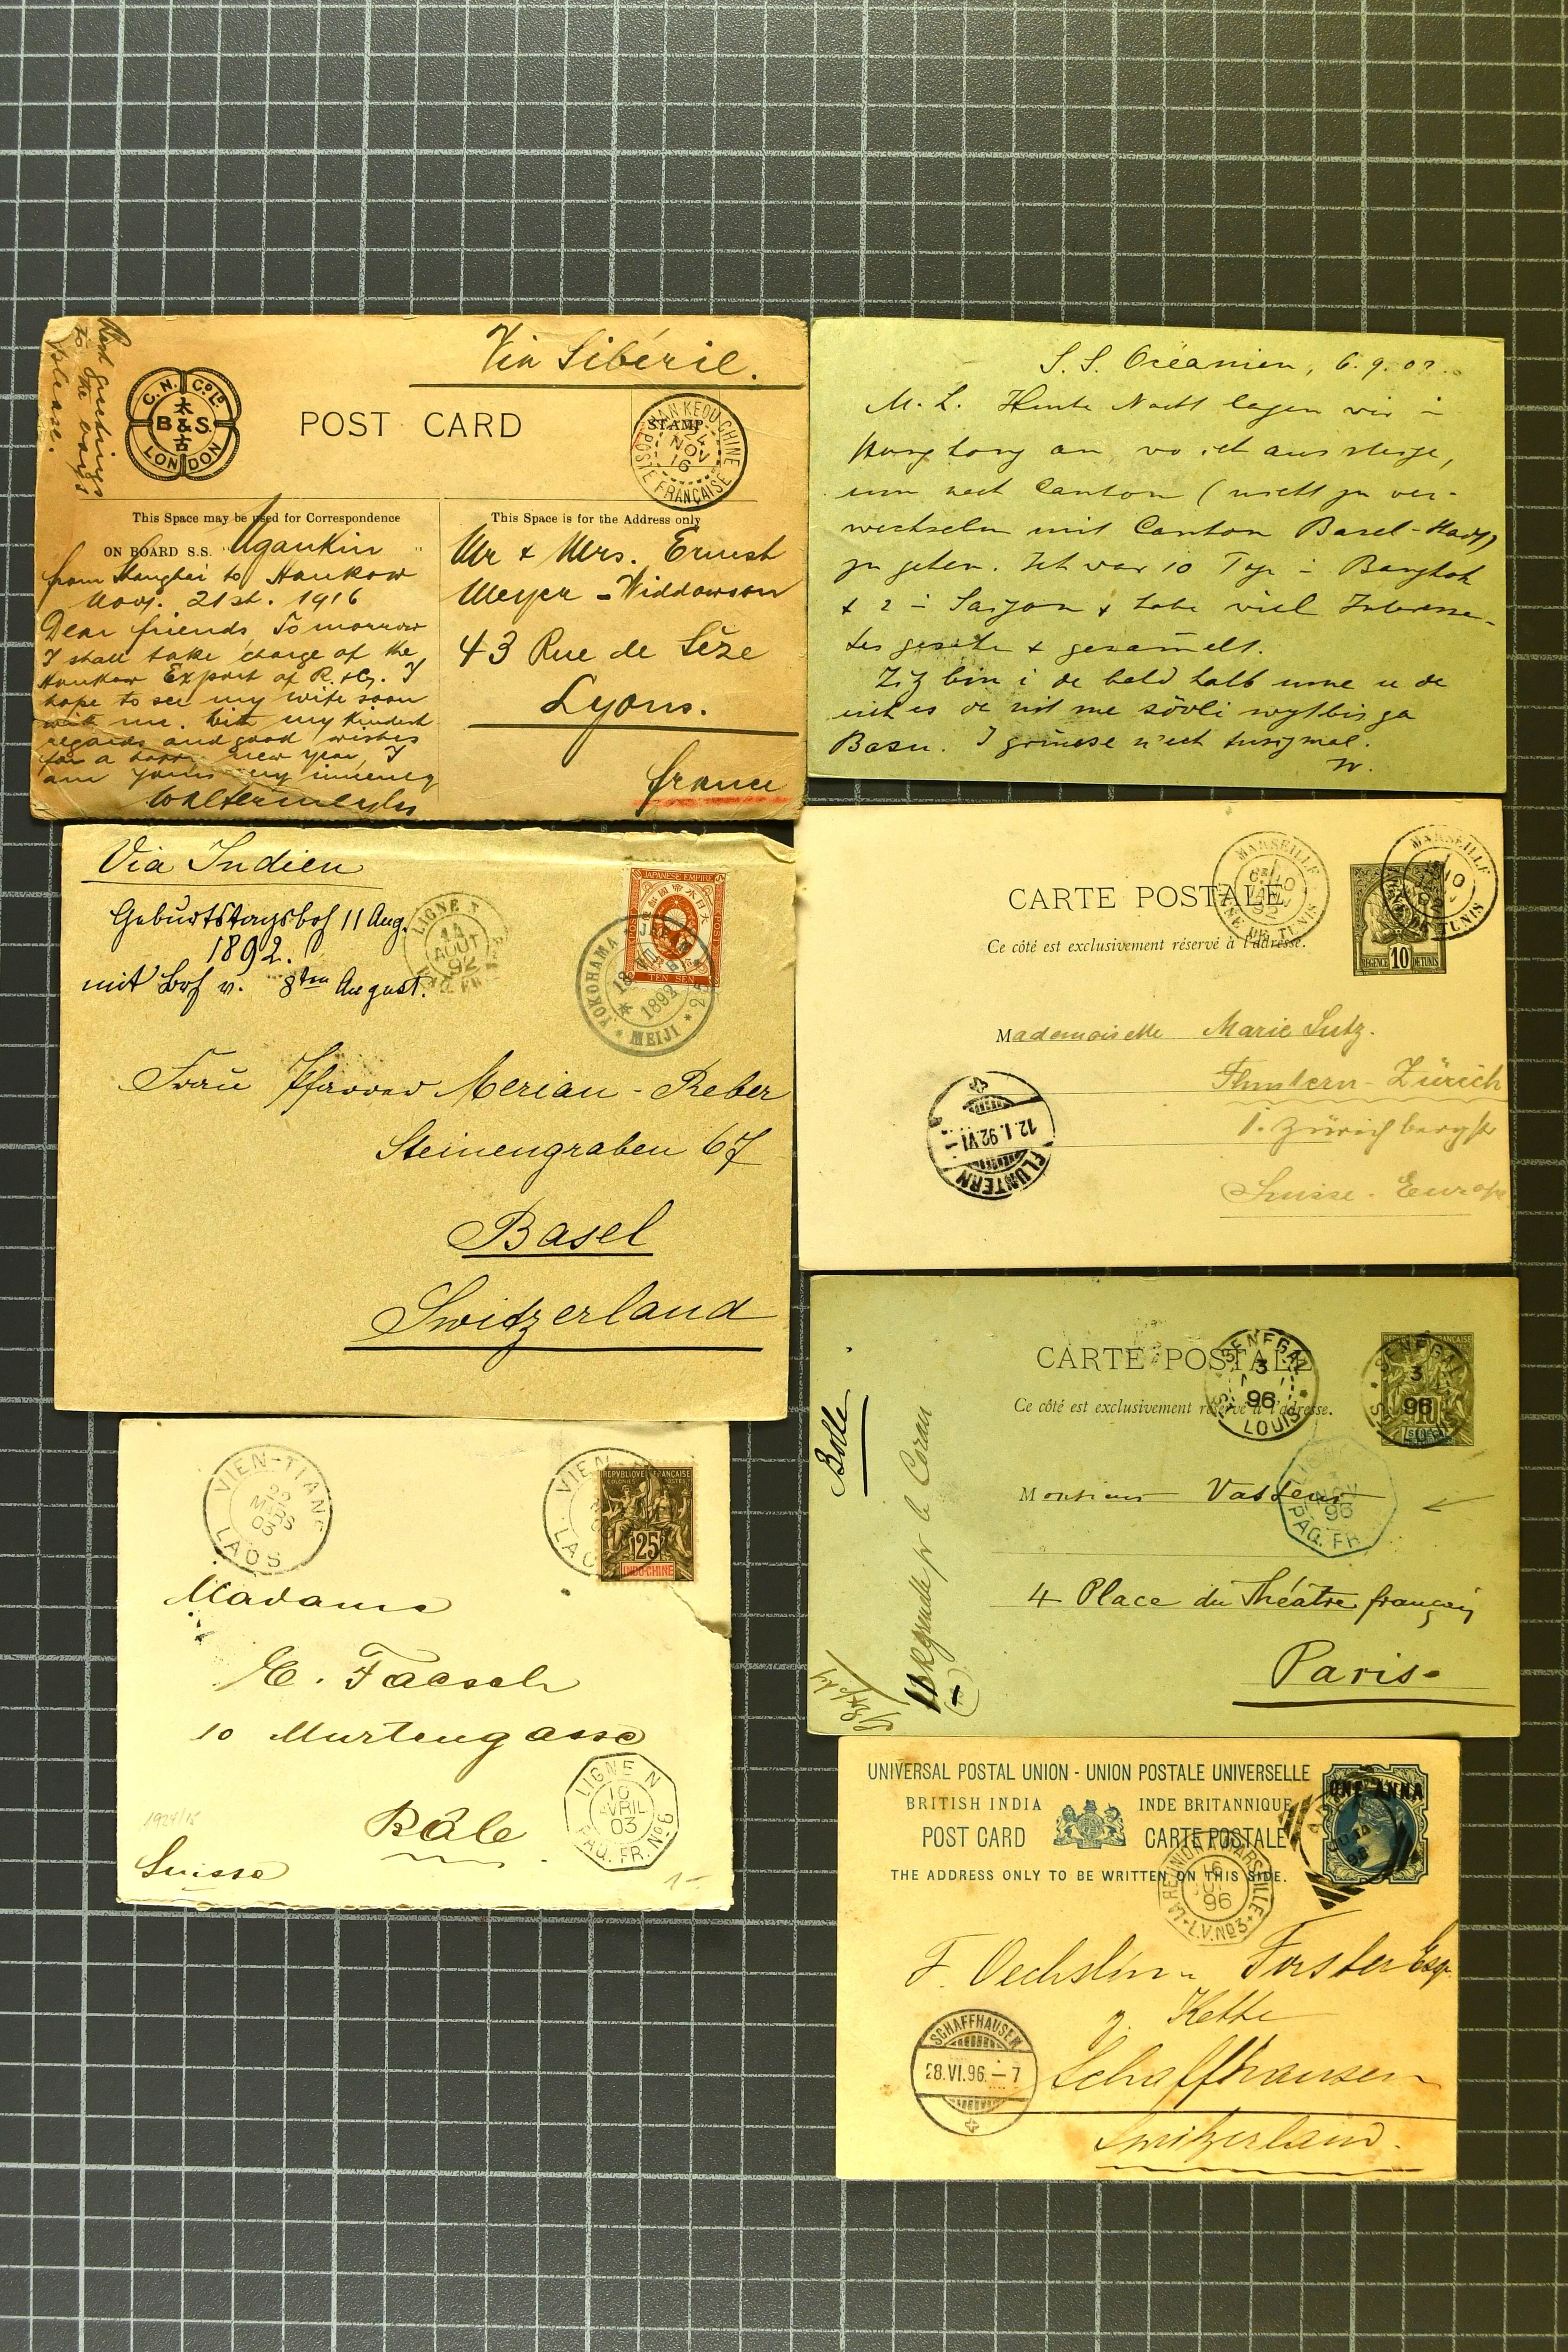 Best Greetings
to the boys
please.
C.N. Co Ld
太
B & S.
古
LONDON
Via Sibérie.
POST CARD
STAMP
HAN-KEOU CHINE
24
NOV
16
POSTE FRANÇAISE
This Space may be used for Correspondence
ON BOARD S.S. "Ngankin"
from Shanghai to Hankow
Nov. 21st. 1916
Dear friends, Tomorrow
I shall take charge of the
Hankow Export of R. & Co. I
hope to see my wife soon
with me. With my kindest
regards and good wishes
for a happy new year, I
am yours
This Space is for the Address only
Mr & Mrs. Ernest
Meyer - Widdowson
43 Rue de Sèze
Lyons.
france
S. S. Océanien, 6. 9. 02.
M. L. Heute Nacht legen wir in
Hongkong an, wo ich aussteige,
um nach Canton (nicht zu ver-
wechseln mit Canton Basel-Stadt)
zu gehen. Ich war 10 Tage in Bangkok
& 2 in Saigon & habe viel Interessan-
tes gesehen & gesam̄elt.
Basu.
Via Indien
Geburtstagsbrf 11 Aug.
1892.
mit Brf v. 8ten August.
LIGNE N
14
AOUT
92
JAPANESE EMPIRE
TEN SEN
YOKOHAMA JAPAN
18 VII
1892
25
MEIJI
Frau Pfarrer Merian - Reber
Steinengraben 67
Basel
Switzerland
CARTE POSTALE
Ce côté est exclusivement réservé à l'adresse.
MARSEILLE
10
92
LIGNE DE TUNIS
MARSEILLE
10
LIGNE DE TUNIS
RÉGENCE 10 DE TUNIS
Mademoiselle Marie Lutz.
Fluntern - Zürich
Suisse - Europe
12.I.92.VI-
FLUNTERN
CARTE POSTALE
Ce côté est exclusivement réservé à l'adresse.
SENEGAL
3
96
ST LOUIS
RÉPUBLIQUE FRANÇAISE
10
SÉNÉGAL
SENEGAL
3
96
ST LOUIS
LIGNE
NOV
96
PAQ. FR.
Bolle
Monsieur Vasseur
4 Place du Théâtre français
Paris.
VIEN-TIANE
MARS
03
LAOS
VIEN
LAOS
REPUBLIQUE FRANÇAISE
COLONIES POSTES
25
INDO-CHINE
Madame
E. Faesch
10 Murtengasse
Bâle
Suisse
LIGNE N
10
AVRIL
03
PAQ. FR. No 6
1924/15
1-
UNIVERSAL POSTAL UNION - UNION POSTALE UNIVERSELLE
BRITISH INDIA INDE BRITANNIQUE
POST CARD CARTE POSTALE
THE ADDRESS ONLY TO BE WRITTEN ON THIS SIDE.
ONE ANNA
LA REUNION A MARSEILLE
16
JUIN
96
L.V. No 3
F. Oechslin - Forster Esqr.
z. Kette
Schaffhausen
Switzerland.
SCHAFFHAUSEN
28.VI.96.-7